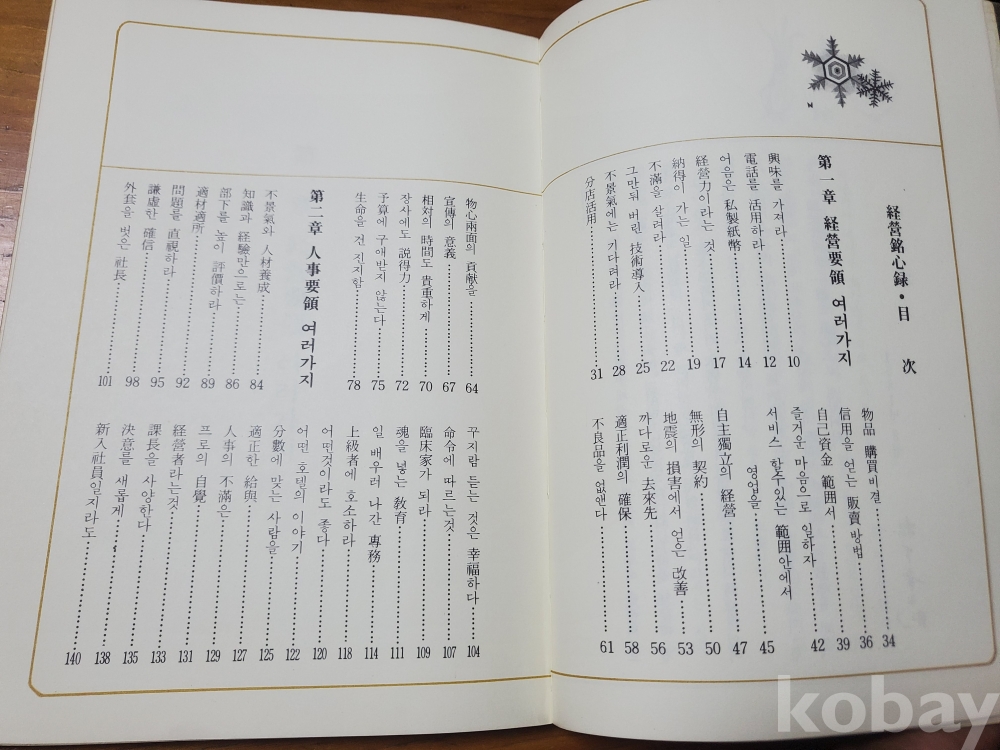 経營銘心録・目 次
第一章 経營要領 여러가지
興味를 가져라 10
電話를 活用하라 12
어음은 私製紙幣 14
経營力이라는 것 17
納得이 가는 일 19
不滿을 살려라 22
그만둬 버린 技術導入 25
不景氣에는 기다려라 28
分店活用 31
物品 購買비결 34
信用을 얻는 販賣方法 36
自己資金 範囲서 39
즐거운 마음으로 일하자 42
서비스 할수있는 範囲안에서
영업을 45
自主獨立의 経營 47
無形의 契約 50
地震의 損害에서 얻은 改善 53
까다로운 去來先 56
適正利潤의 確保 58
不良品을 없앤다 61
物心兩面의 貢献을 64
宣傳의 意義 67
相対의 時間도 貴重하게 70
장사에도 説得力 72
予算에 구애받지 않는다 75
生命을 건 진지함 78
第二章 人事要領 여러가지
不景氣와 人材養成 84
知識과 経驗만으로는 86
部下를 높이 評價하라 89
適材適所 92
問題를 直視하라 95
謙虛한 確信 98
外套을 벗은 社長 101
꾸지람 듣는 것은 幸福하다 104
命令에 따르는것 107
臨床家가 되라 109
魂을 넣는 敎育 111
일 배우러 나간 専務 114
上級者에 호소하라 118
어떤것이라도 좋다 120
어떤 호텔의 이야기 122
分數에 맞는 사람을 125
適正한 給與 127
人事의 不滿은 129
프로의 自覺 131
経營者라는것 133
課長을 사양한다 135
決意를 새롭게 138
新入社員일지라도 140
kobay